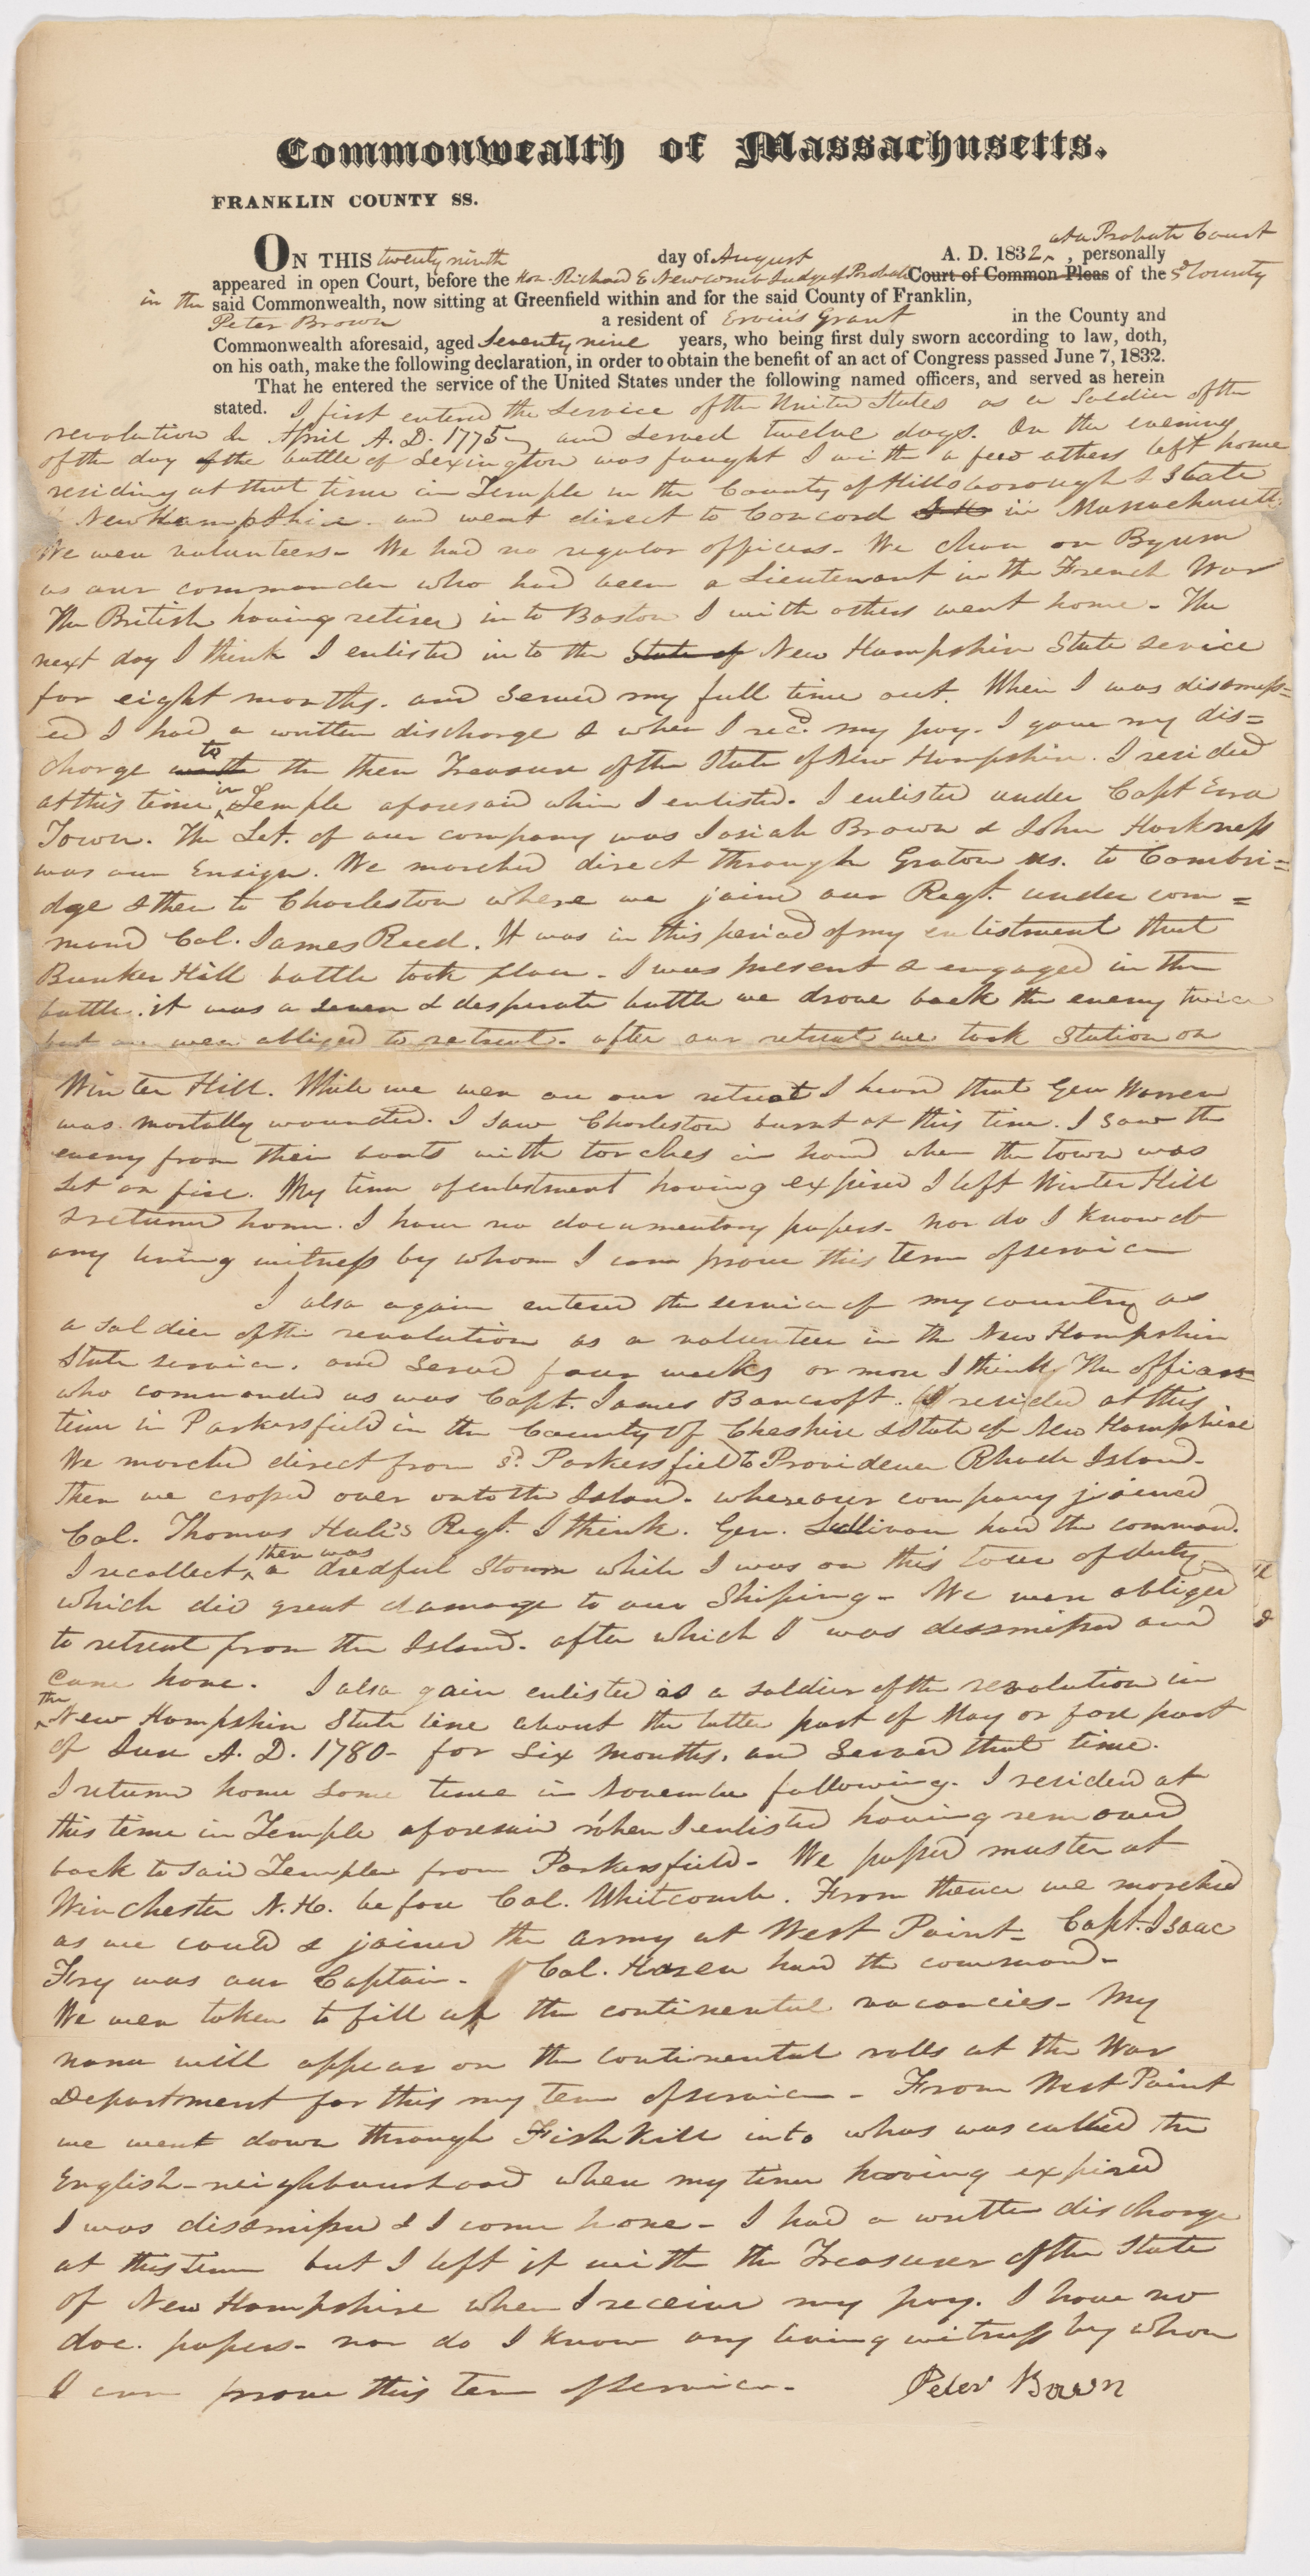 Commonwealth of Massachusetts.
FRANKLIN COUNTY SS.
at a Probate Court
ON THIS twenty ninth day of August A. D. 1832 ^, personally
appeared in open Court, before the Hon. Richard E Newcomb Judge of Probate Court of Common Pleas of the sd County
in the said Commonwealth, now sitting at Greenfield within and for the said County of Franklin,
Peter Brown a resident of Ervin's Grant in the County and
Commonwealth aforesaid, aged Seventy nine years, who being first duly sworn according to law, doth,
on his oath, make the following declaration, in order to obtain the benefit of an act of Congress passed June 7, 1832.
That he entered the service of the United States under the following named officers, and served as herein
stated. I first entered the service of the United States as a Soldier of the
revolution in April A. D. 1775 and served twelve days. On the evening
of the day the battle of Lexington was fought I with a few others left home
residing at that time in Temple in the County of Hillsborough & State
New Hampshire. and went direct to Concord in Massachusetts.
We were volunteers - We had no regular officers - We chose on Byrem
as our commander who had been a Lieutenant in the French War
The British having retired into Boston I with others went home - The
next day I think I enlisted in to the State of New Hampshire State service
for eight months. and served my full time out. When I was dismiss=
ed I had a written discharge & when I recd. my pay. I gave my dis=
charge to the then Treasurer of the State of New Hampshire. I resided
at this time in Temple aforesaid when I enlisted. I enlisted under Capt Ezra
Town. The Let. of our company was Josiah Brown & John Harkness
was our Ensign. We marched direct through Groton Ms. to Cambri=
dge & then to Charleston where we joined our Regt. under com=
mand Col. James Reed. It was in this period of my enlistment that
Bunker Hill battle took place - I was present & engaged in the
battle. it was a severe & desperate battle we drove back the enemy twice
but we were obliged to retreat. after our retreat we took Station on
Winter Hill. While we were on our retreat I heard that Gen Warren
was mortally wounded. I saw Charleston burnt at this time. I saw the
enemy from their boats with torches in hand when the town was
set on fire. My time of enlistment having expired I left Winter Hill
& returned home. I have no documentary papers - nor do I know of
any living witness by whom I can prove this term of service
I also again entered the service of my country as
a soldier of the revolution as a volunteer in the New Hampshire
State service. and served four weeks or more I think The officer
who commanded us was Capt. James Bancroft. I resided at this
time in Parkersfield in the County of Cheshire & State of New Hampshire
We marched direct from sd. Parkersfield to Providence Rhode Island.
Then we crossed over onto the Island. where our company joined
Col. Thomas Hale's Regt. I think. Gen. Sullivan had the command.
I recollect ^ there was a dredful Storm while I was on this tour of duty
which did great damage to our Shiping - We were obliged
to retreat from the Island. after which I was dissmissed and
came home. I also gain enlisted as a soldier of the revolution in
^ the New Hampshire State line about the latter part of May or fore part
of June A. D. 1780 - for six months. and served that time.
I returned home some time in November following. I resided at
this time in Temple aforesaid when I enlisted having removed
back to said Temple from Parkersfield - We passed muster at
Winchester N. H. before Col. Whitcomb. From thence we marched
as we could & joined the army at West Point - Capt. Isaac
Fry was our Captain - Col. Hazen had the command -
We were taken to fill up the continental vacancies - My
name will appear on the continental rolls at the War
Department for this my term of service - From West Point
we went down through Fish Kill into whas was called the
English-neighbourhood when my time having expired
I was dissmissed & I come home - I had a written discharge
at this time but I left it with the Treasurer of the State
of New Hampshire when I receive my pay. I have no
doc. papers - nor do I know any living witness by whom
I can prove this term of service - Peter Brown